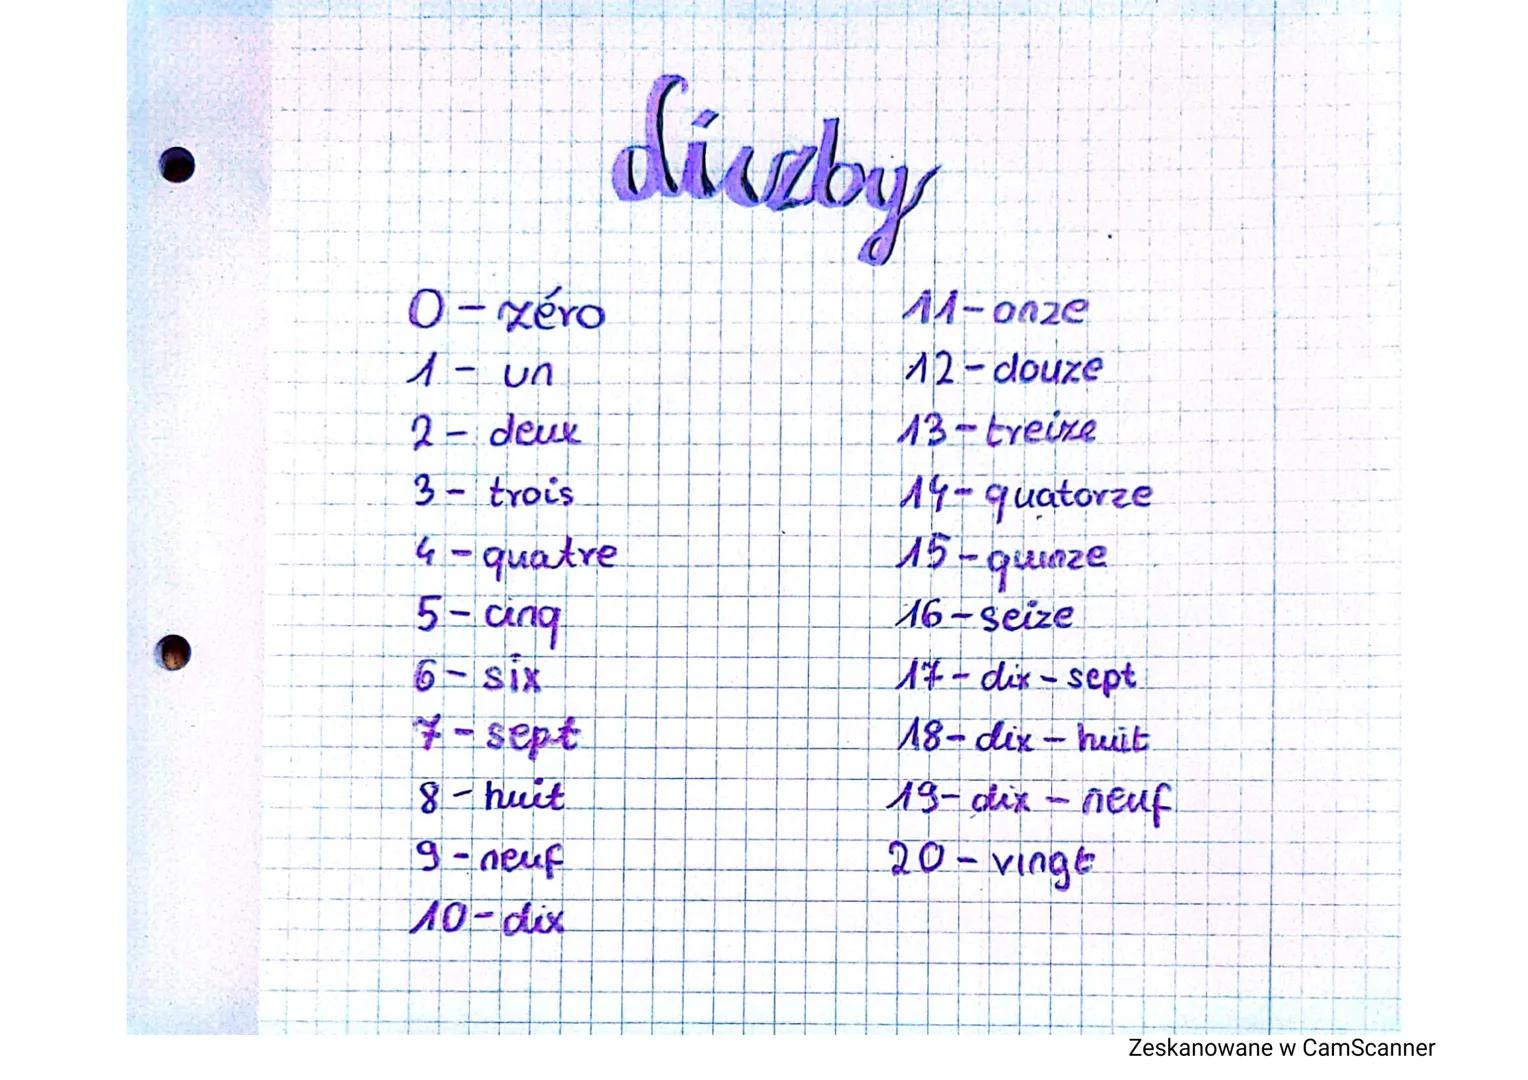 liczby
0 - zéro
1 - un
2 - deux
3 - trois
4 - quatre
5 - cinq
6 - six
7 - sept
8 - huit
9 - neuf
10 - dix
11 - onze
12 - douze
13 - treize
14 - quatorze
15 - quinze
16 - seize
17 - dix - sept
18 - dix - huit
19 - dix - neuf
20 - vingt
Zeskanowane w CamScanner